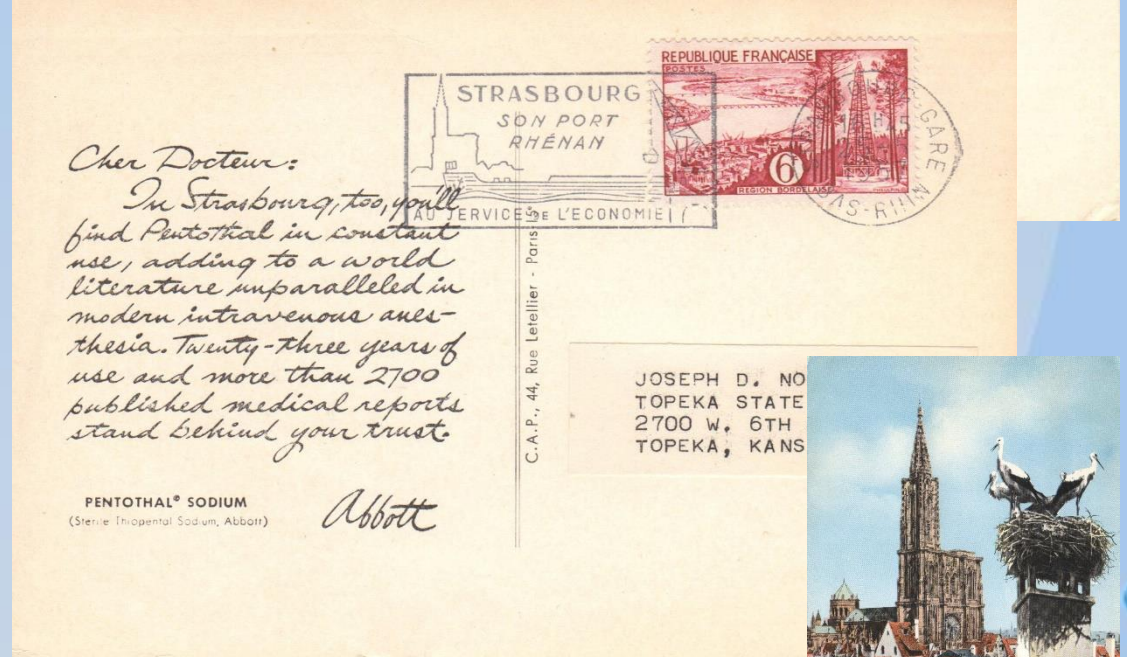 STRASBOURG
SON PORT
RHÉNAN
AU SERVICE DE L'ECONOMIE
REPUBLIQUE FRANÇAISE
POSTES
6F
REGION BORDELAISE
GARE
BAS-RHIN
Cher Docteur:
In Strasbourg, too, you'll
find Pentothal in constant
use, adding to a world
literature unparalleled in
modern intravenous anes-
thesia. Twenty-three years of
use and more than 2700
published medical reports
stand behind your trust.
Abbott
PENTOTHAL® SODIUM
(Sterile Thiopental Sodium, Abbott)
C.A.P., 44, Rue Letellier - Paris-15e
JOSEPH D. NO
TOPEKA STATE
2700 W. 6TH
TOPEKA, KANS